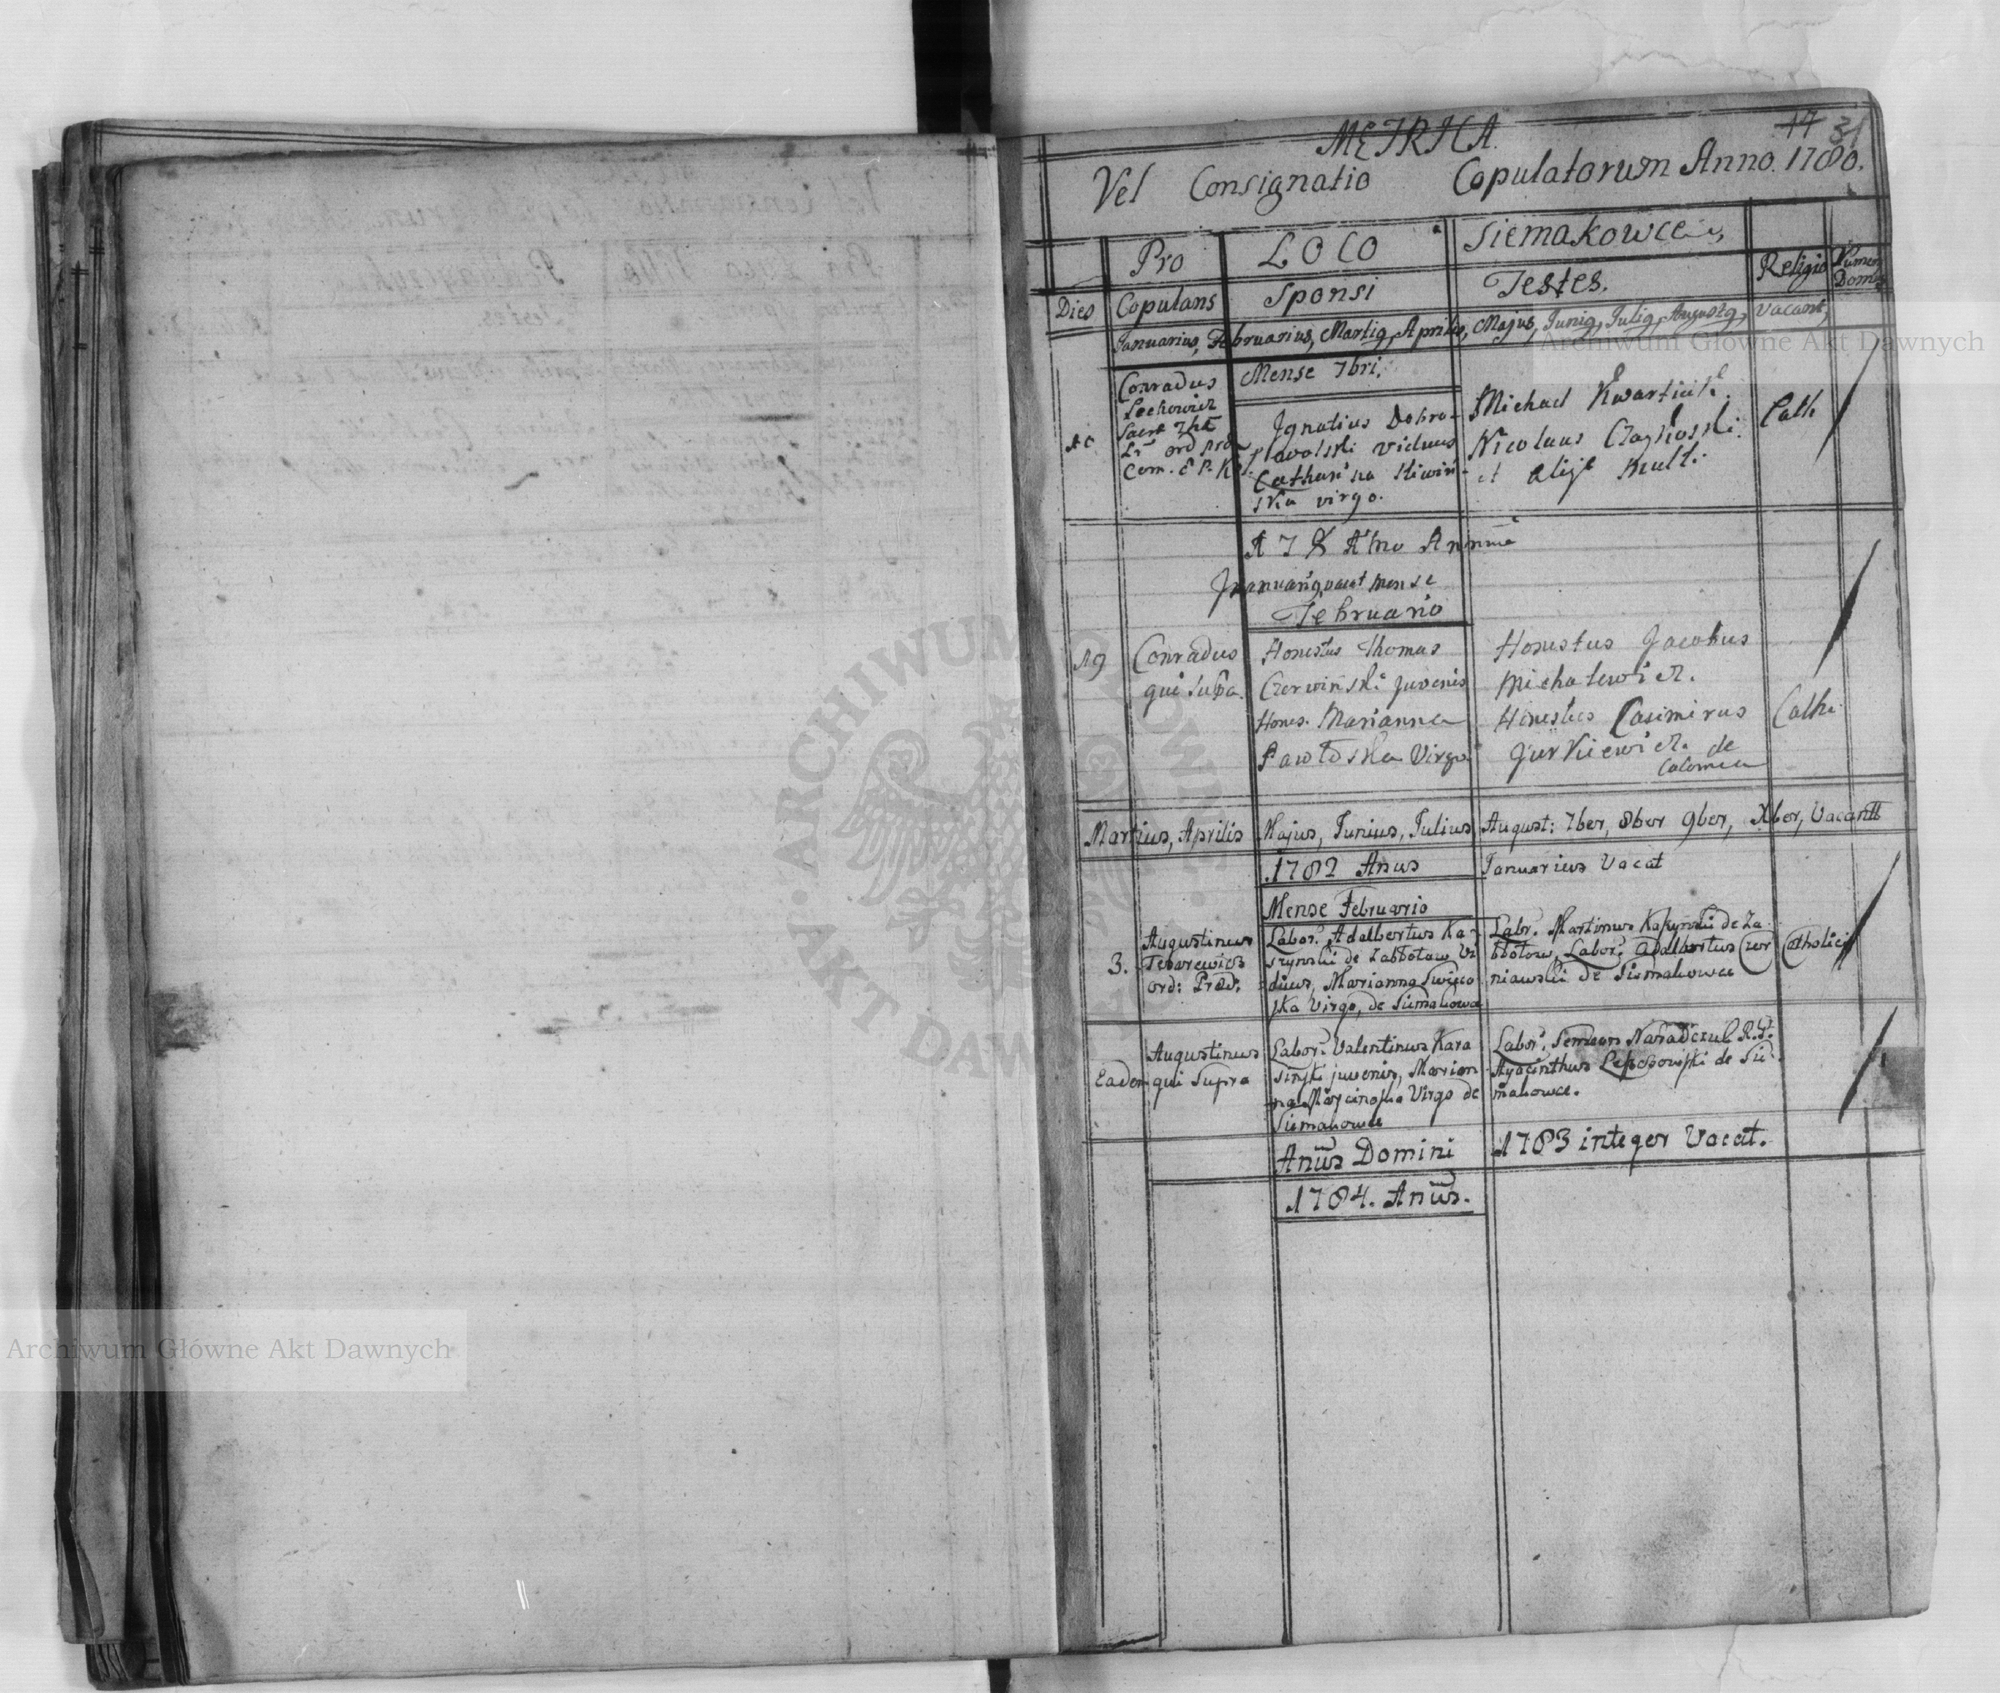 METRICA.
17 31
Vel Consignatio Copulatorum Anno. 1780.
Pro LOCO Siemakowce
Dies Copulans Sponsi Testes. Religio Numerus Domus
Januarius, Februarius, Martiq, Aprilis, Majus, Juniq, Juliq, Augustq, vacant,
Mense 7bri.
Conradus
Ignatius Dobro-
wolski viduus
Catharina Kiwiń-
ska virgo.
Michael Kwartiuk.
Nicolaus
et alije mult:
Cath
Januariq, vacat mense
Februario
19
Conradus
qui supa.
Honestus Thomas
Czerwiński juvenis
Hones. Marianna
Pawłoska Virgo.
Honestus Jacobus
Michalewicz.
Honestus Casimirus
Jurkiewicz. de
Colomea
Cath
Martius, Aprilis Majus, Junius, Julius August: 7ber, 8ber 9ber, Xber, Vacant
1782 Anus Januarius Vacat
Mense Februario
3.
Augustinus
ord: Præd:
Labor: Adalbertus Ka-
szynski de Zabbotow Vi
duus, Marianna Swięco
ska Virgo, de Siemakowce
Labr. Martinus Kaszynski de Za-
bbotow, Labor: Adalbertus Czer
niawski de Siemakowce
Catholici
Eadem
Augustinus
qui Supra
Labor: Valentinus Kara
sinski juvenis, Marian
na Marcinoska Virgo de
Siemakowce
Labor: Semion
Hyacinthus de Sie-
makowce.
Anus Domini 1783 integer Vacat.
1784. Anus.
Archiwum Główne Akt Dawnych
Archiwum Główne Akt Dawnych
ARCHIWUM GŁÓWNE AKT DAWNYCH